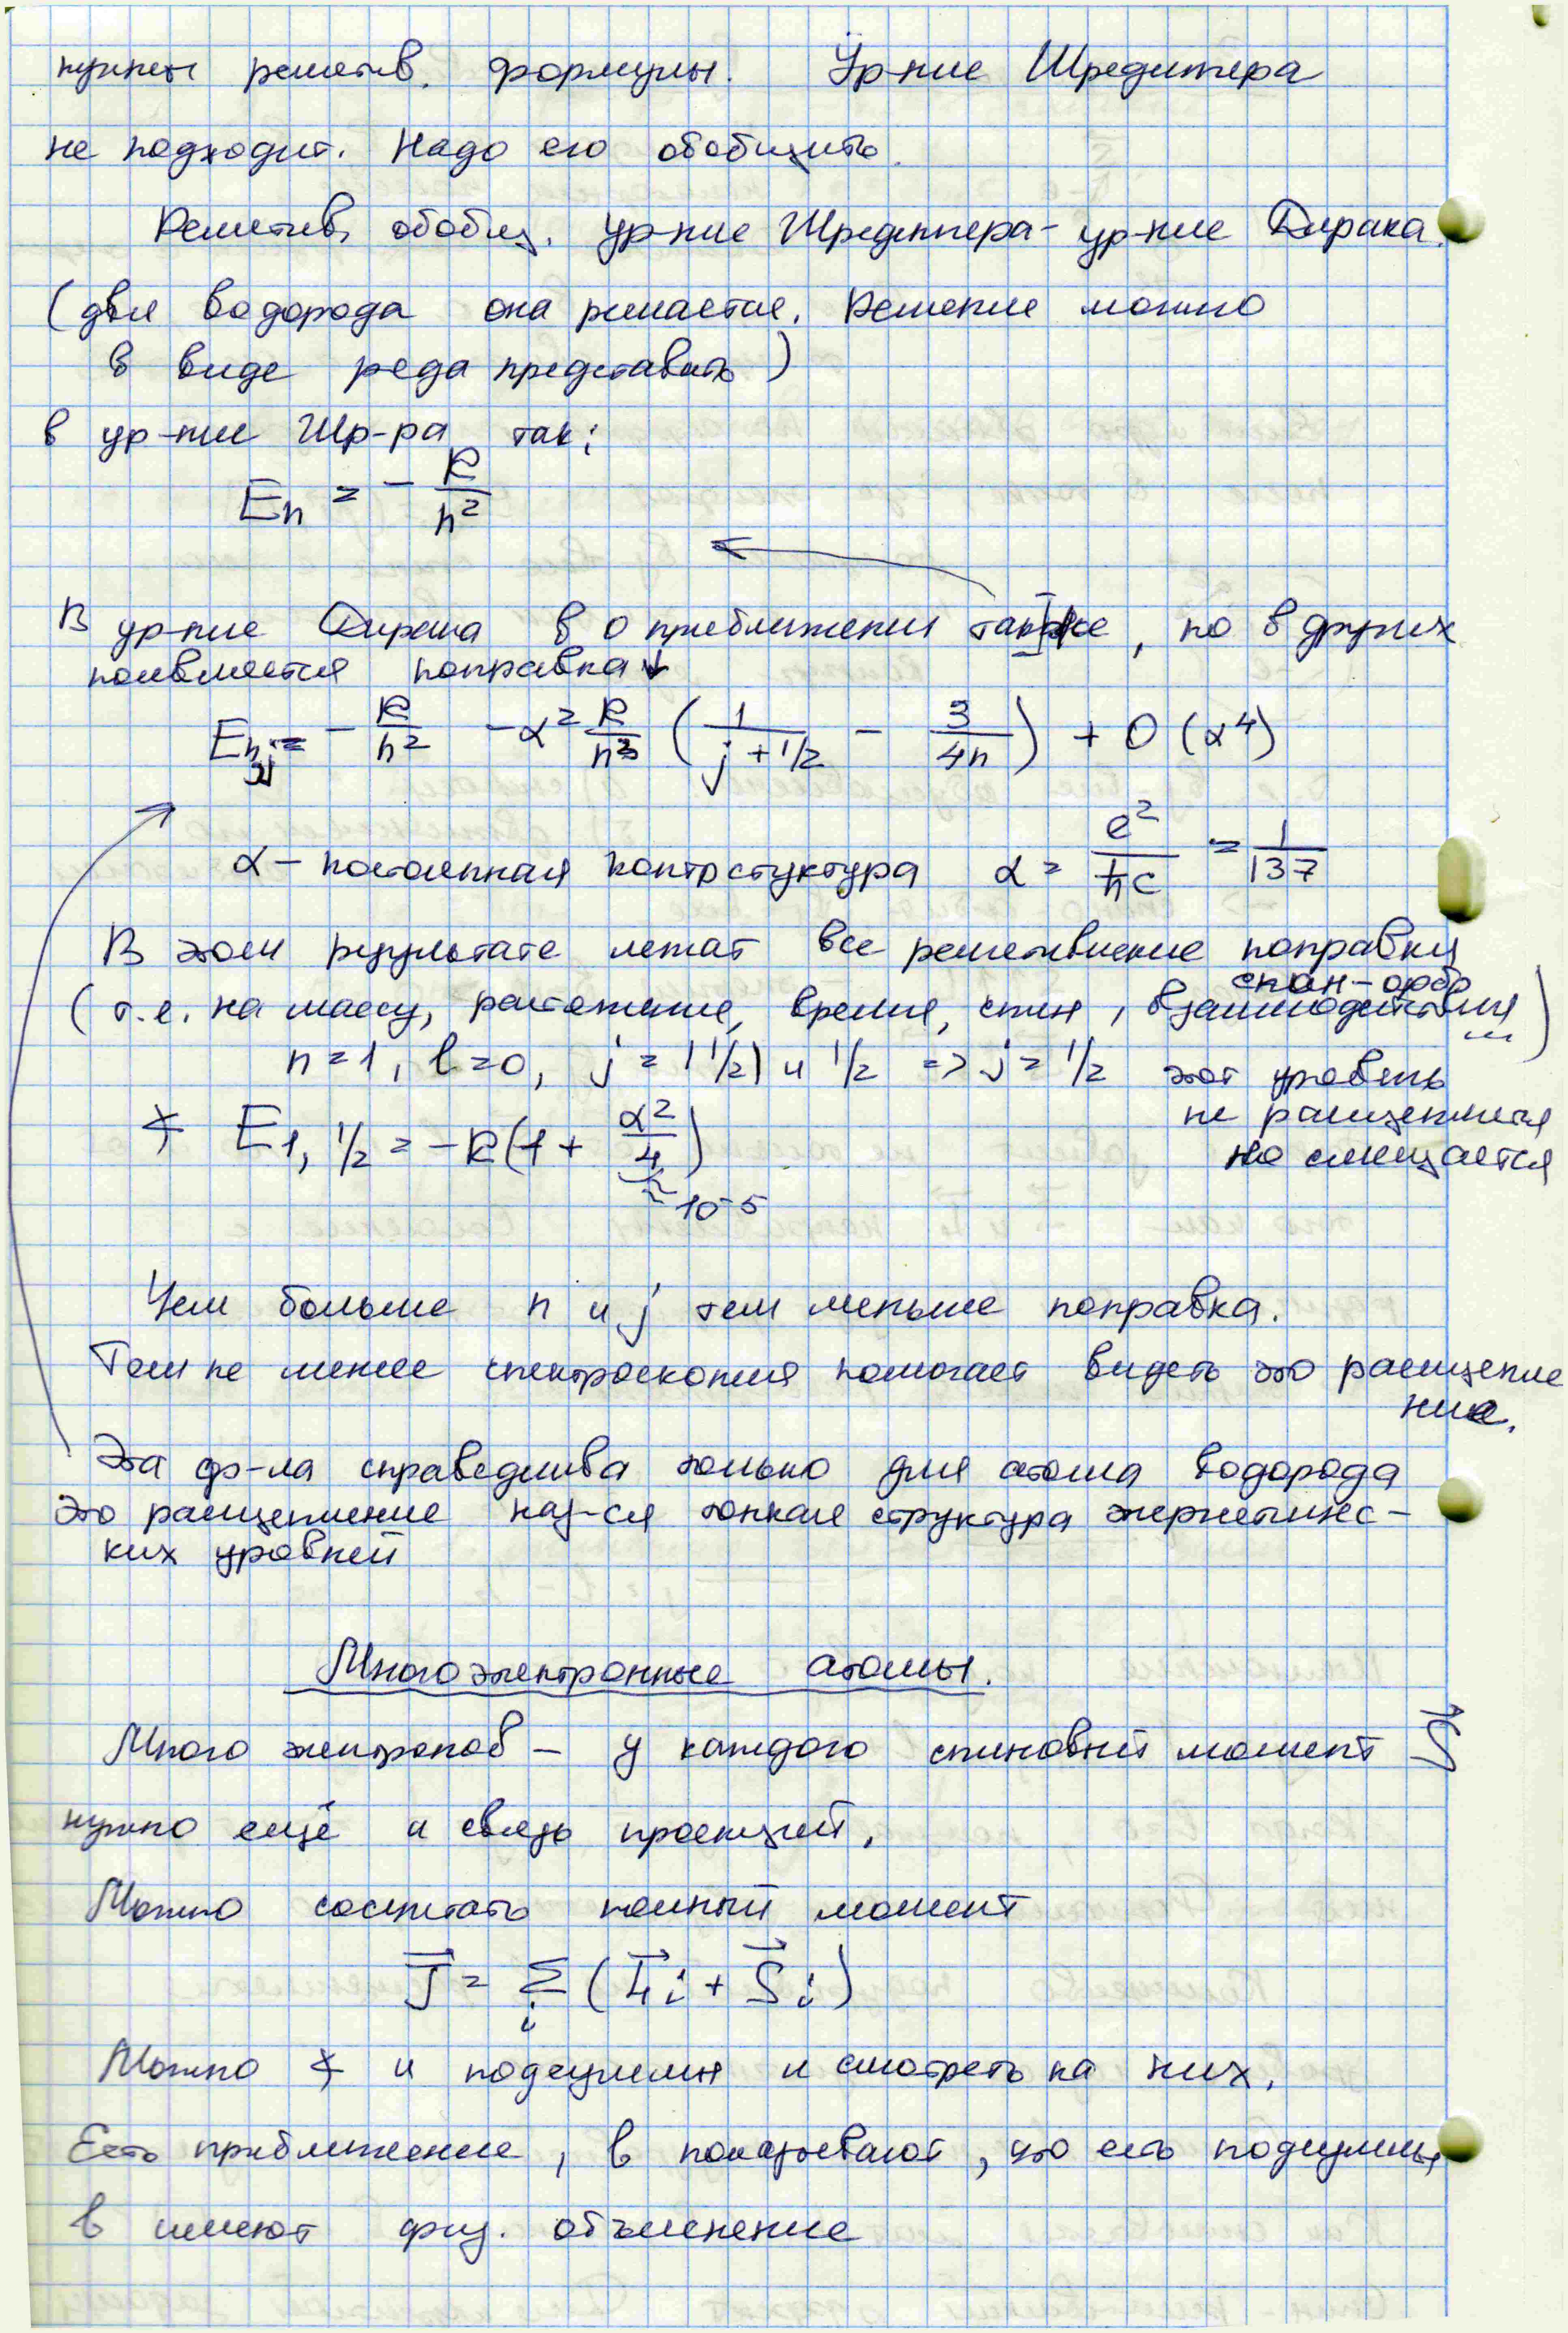 нужны релятив. формулы. Ур-ние Шредингера
не подходит. Надо его обобщить.
Релятив. обобщ. ур-ние Шредингера - ур-ние Дирака.
(для водорода она решается. Решение можно
в виде ряда представить)
в ур-ние Шр-ра так:
En = - R/n²
В ур-ние Дирака в 0 приближении также, но в других
появляется поправка ↓
Enj = - R/n² - α² R/n³ (1/(j + 1/2) - 3/4n) + O(α⁴)
α - постоянная тонкой структура α = e²/ħc = 1/137
В этом результате лежат все релятивиские поправки
(т.е. на массу, растяжение, время, спин, спин-орб взаимодействия ...)
n = 1, l = 0, j = |1/2| и 1/2 => j = 1/2 этот уровень
не расщепляется
но смещается
E1, 1/2 = - R(1 + α²/4)
≈ 10⁻⁵
Чем больше n и j тем меньше поправка.
Тем не менее спектроскопия помогает видеть это расщепле
ние.
Эта ф-ла справедлива только для атома водорода
Это расщепление наз-ся тонкая структура энергетичес-
ких уровней
Многоэлектронные атомы.
Много электронов - у каждого спиновый момент
нужно ещё и связь проекций.
Можно сосчитать полный момент
J⃗ = Σi (L⃗i + S⃗i)
Можно и подсуммы и смотреть на них.
Есть приближение, в показывают, что есть подсуммы,
в имеют физ. объяснение